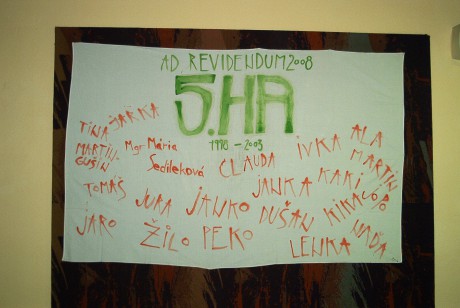 AD REVIDENDUM 2008
5.HA
1998 - 2003
TINA
JARKA
MARTIN-
GUŠIN
Mgr Mária
Sedileková
CLAUDA
IVKA
ALA
MARTIN
TOMÁŠ
JURA
JANKO
JANKA
KAKI
DUŠAN
KIKA
LOPO
JARO
ŽILO
PEKO
LENKA
NAĎA